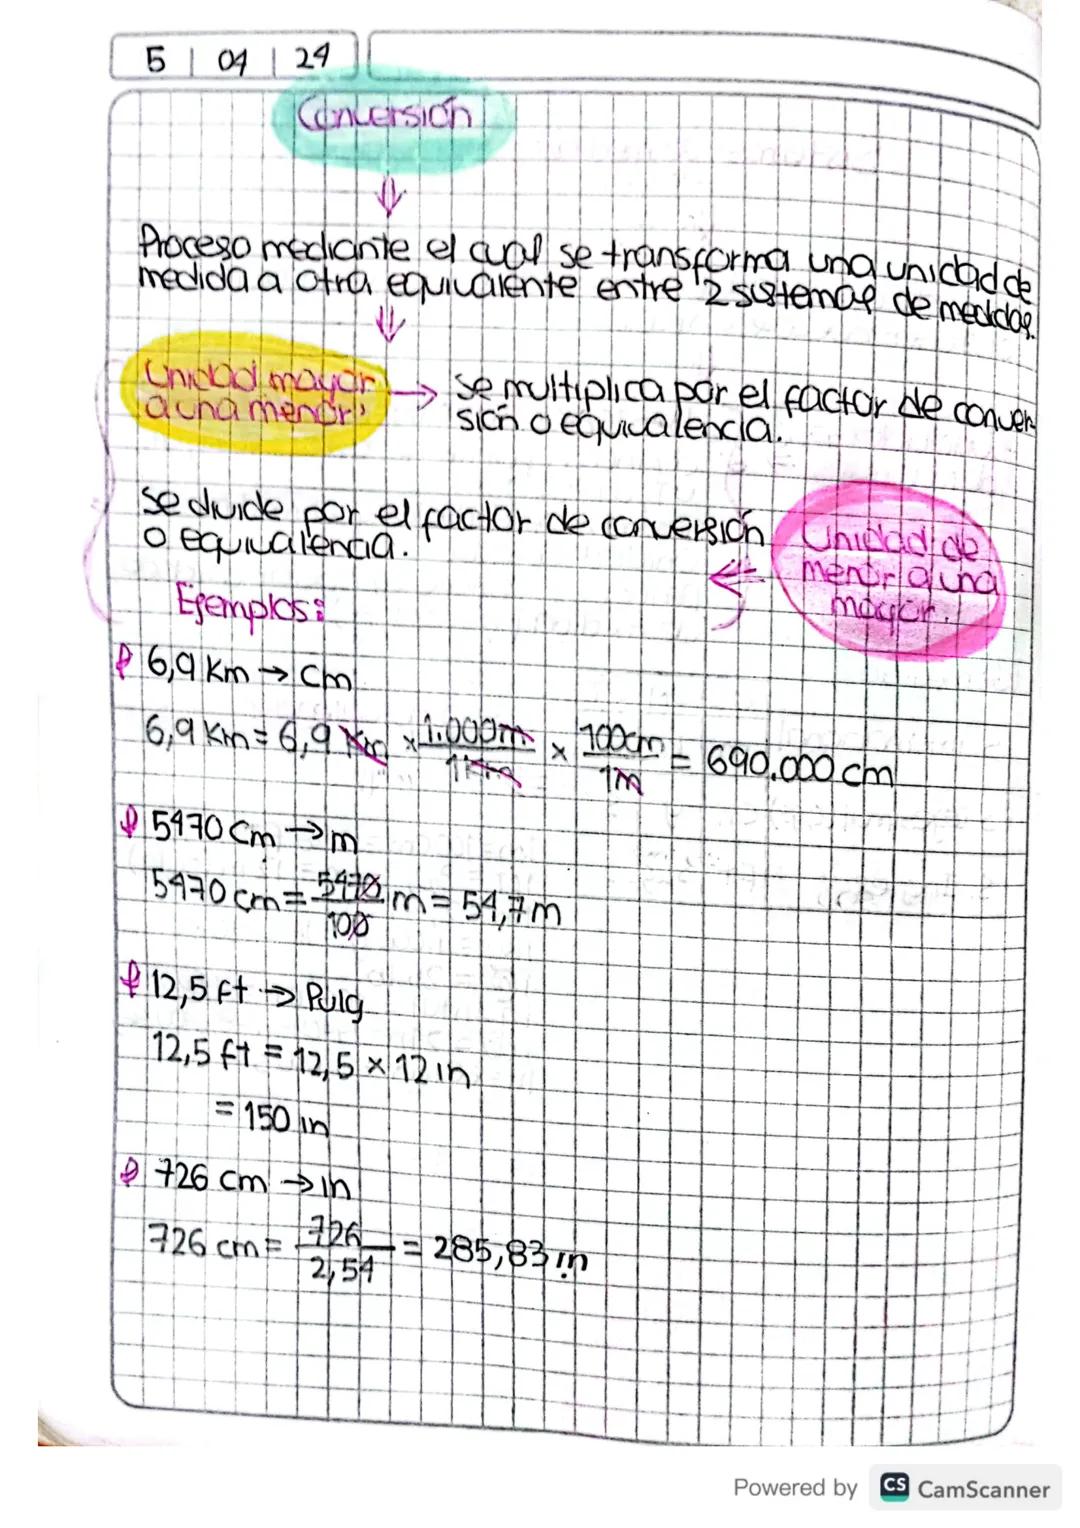 5 | 04 | 24
Conversión
Proceso mediante el cual se transforma una unidad de
medida a otra equivalente entre 2 sistemas de medidas.
Unidad mayor
a una menor
se multiplica por el factor de conver
sión o equivalencia.
se divide por el factor de conversión
o equivalencia.
Unidad de
menor a una
mayor.
Ejemplos:
6,9 Km → Cm
6,9 Km = 6,9 Km × 1.000m / 1Km × 100cm / 1m = 690.000 cm
5470 Cm → m
5470 cm = 5470 / 100 m = 54,7 m
12,5 ft → Pulg
12,5 ft = 12,5 × 12 in
= 150 in
726 cm → in
726 cm = 726 / 2,54 = 285,83 in
Powered by CS CamScanner